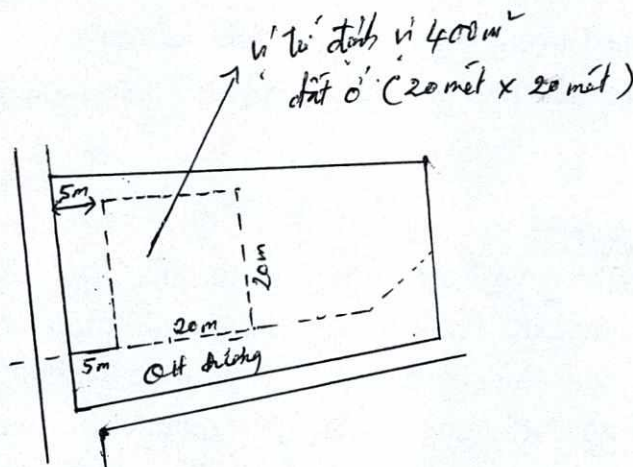 vị trí định vị 400m²
đất ở (20 mét x 20 mét)
5m
20m
20m
5m
QH đường